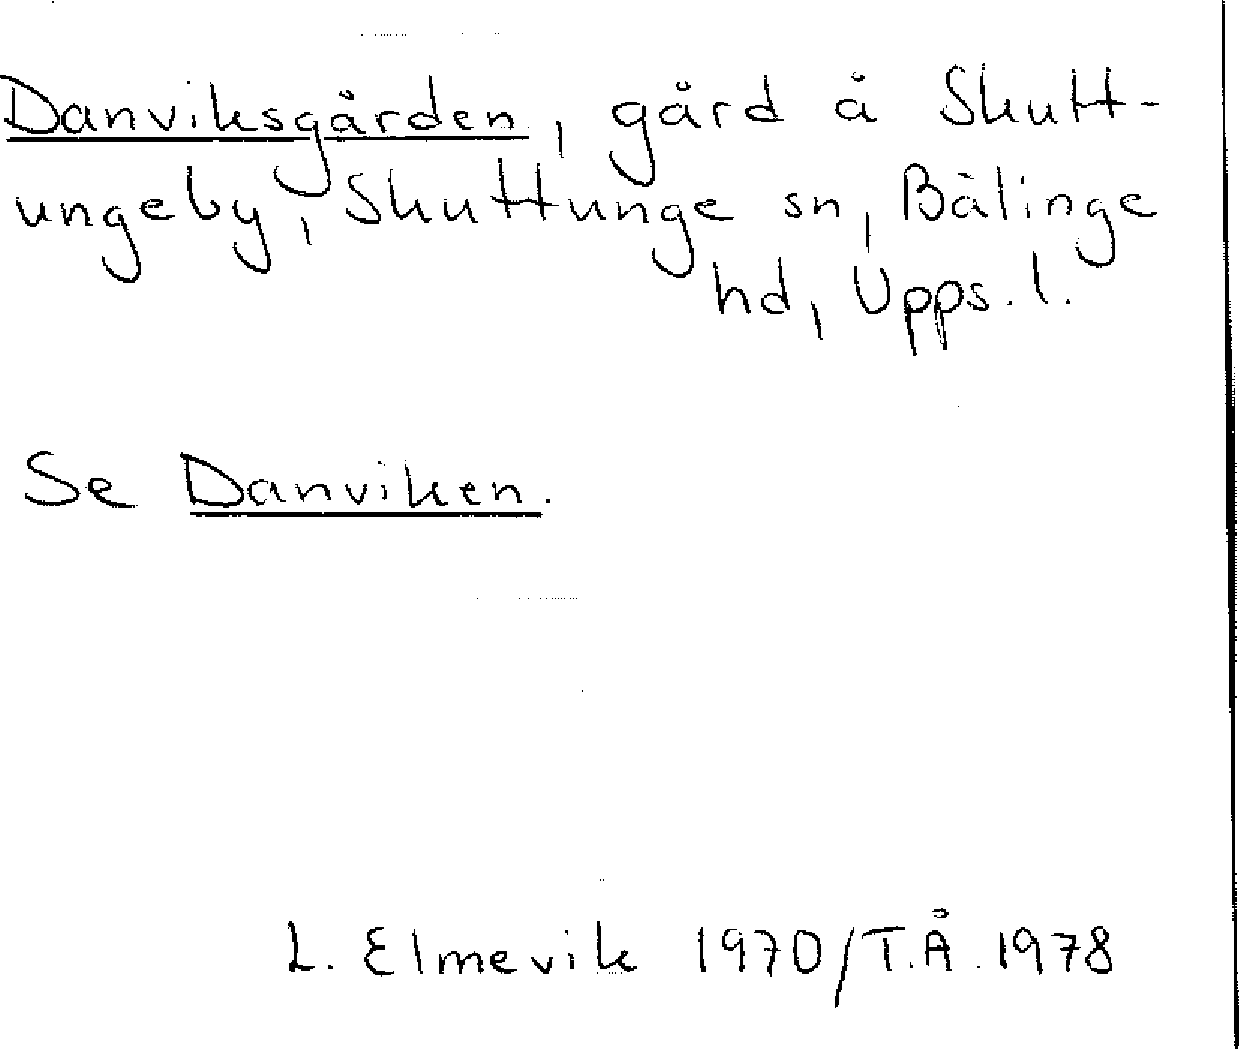 Danviksgården, gård å Skutt-
ungeby, Skuttunge sn, Bälinge
hd, Upps. l.
Se Danviken.
L. Elmevik 1970/T.Å. 1978